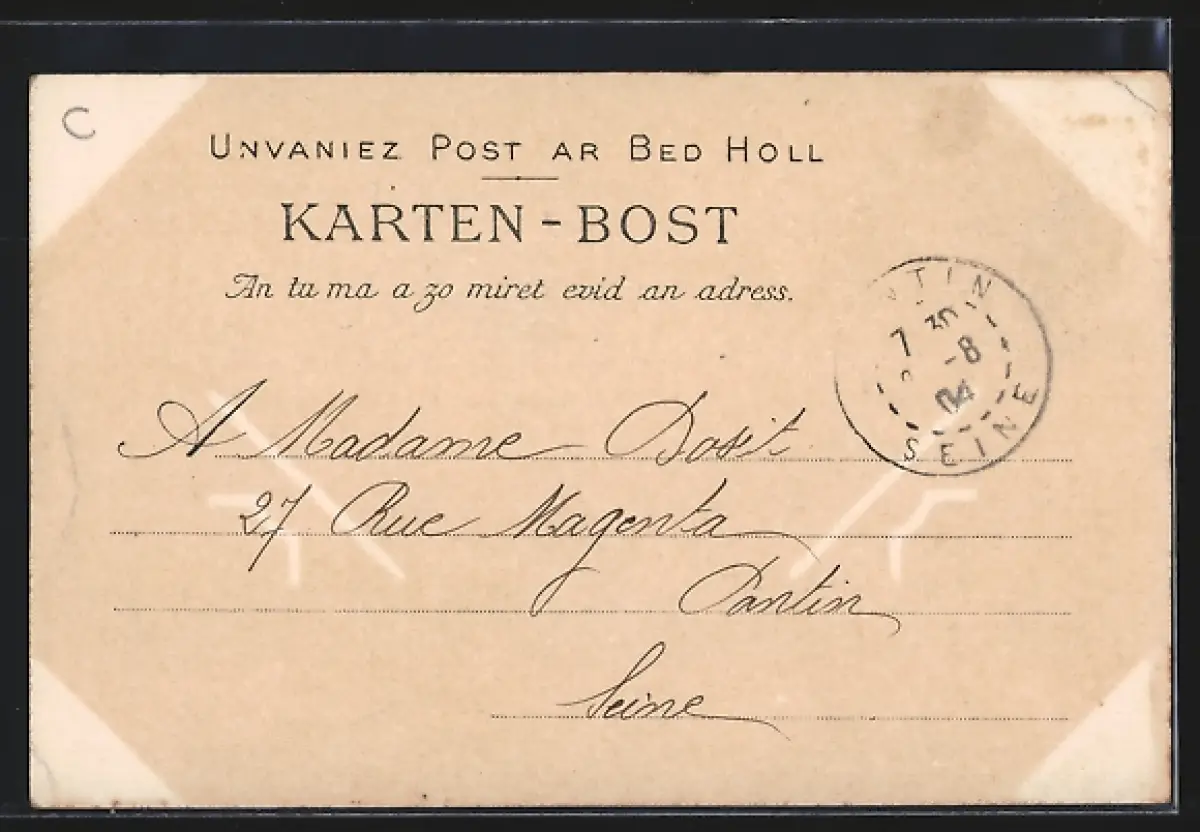 C
UNVANIEZ POST AR BED HOLL
KARTEN-BOST
An tu ma a zo miret evid an adress.
NTIN
7 30
-8
04
SEINE
A Madame Dosit
27 Rue Magenta
Pantin
Seine